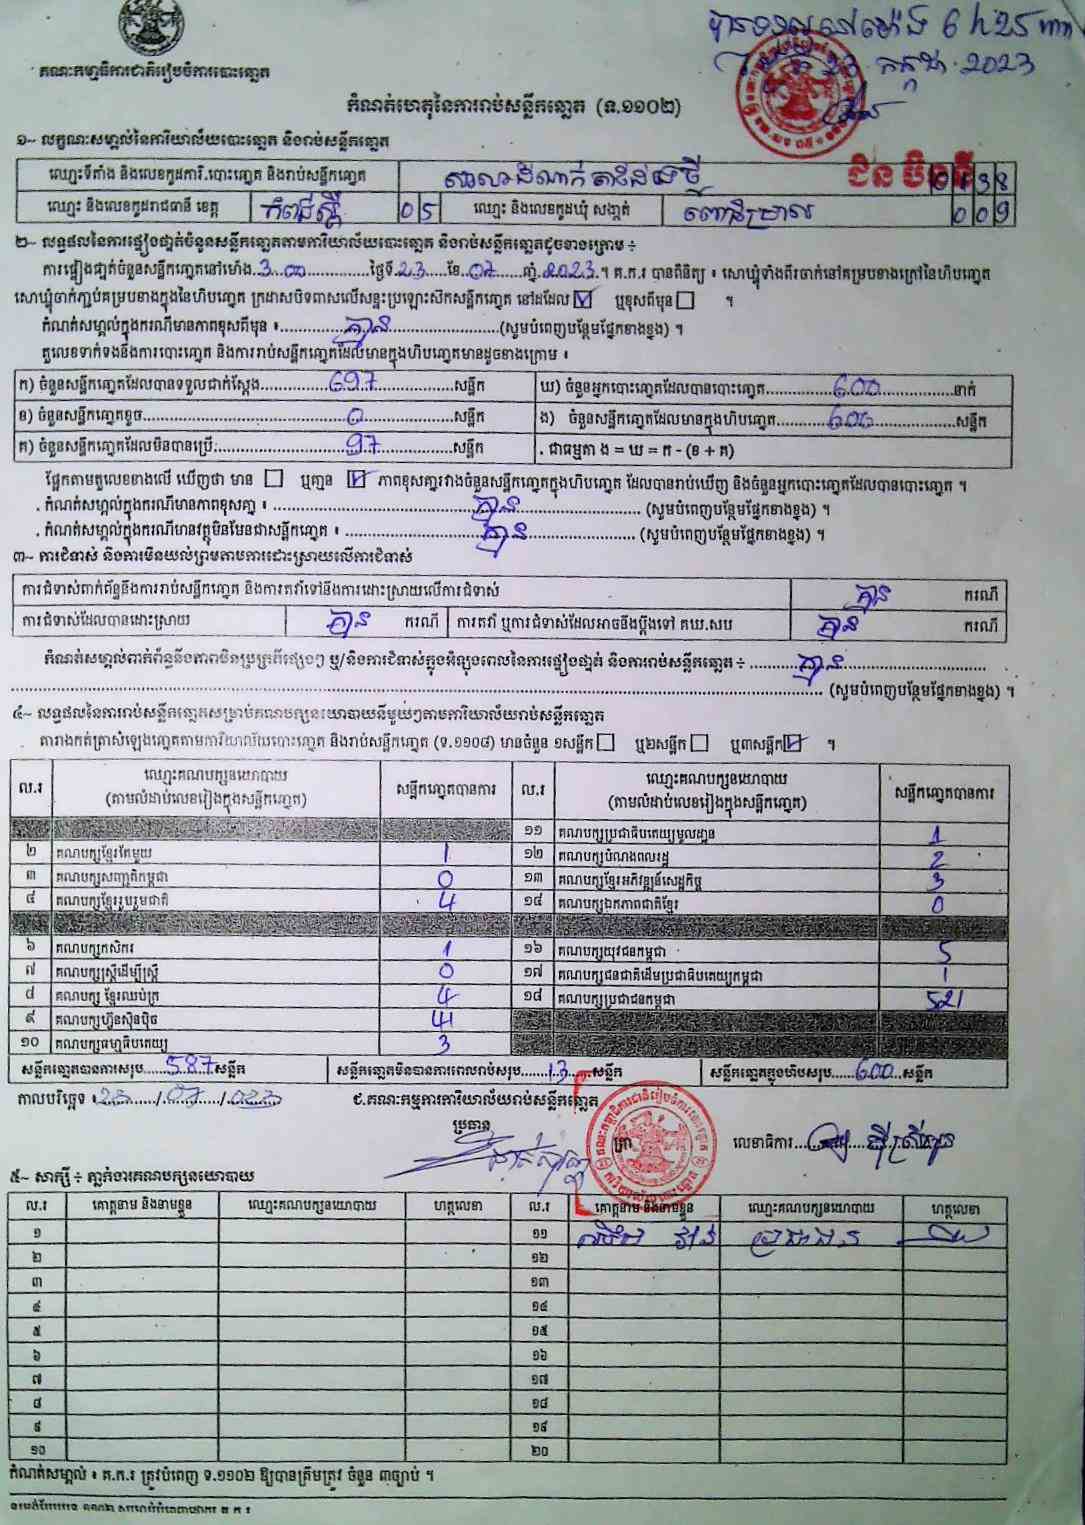 បានទទួលនៅម៉ោង 6 h 25 
កក្កដា 2023
គណៈកម្មាធិការជាតិរៀបចំការបោះឆ្នោត
កំណត់ហេតុនៃការរាប់សន្លឹកឆ្នោត (ទ.១១០២)
១~ លក្ខណៈសម្គាល់នៃការិយាល័យបោះឆ្នោត និងរាប់សន្លឹកឆ្នោត
ឈ្មោះទីតាំង និងលេខកូដការិ.បោះឆ្នោត និងរាប់សន្លឹកឆ្នោត 0138
ឈ្មោះ និងលេខកូដរាជធានី ខេត្ត កំពង់ស្ពឺ 05 ឈ្មោះ និងលេខកូដឃុំ សង្កាត់ ពោធិ៍ម្រាល 009
២~ លទ្ធផលនៃការផ្ទៀងផ្ទាត់ចំនួនសន្លឹកឆ្នោតតាមការិយាល័យបោះឆ្នោត និងរាប់សន្លឹកឆ្នោតដូចខាងក្រោម ÷
ការផ្ទៀងផ្ទាត់ចំនួនសន្លឹកឆ្នោតនៅម៉ោង 3:00 ថ្ងៃទី 23 ខែ 07 ឆ្នាំ 2023 ។ គ.ក.រ បានពិនិត្យ ៖ សោឃ្មុំទាំងពីរចាក់នៅគម្របខាងក្រៅនៃហិបឆ្នោត
សោឃ្មុំចាក់ភ្ជាប់គម្របខាងក្នុងនៃហិបឆ្នោត ក្រដាសបិទពាសលើសន្ទះប្រឡោះស៊កសន្លឹកឆ្នោត នៅដដែល ☑ ឬខុសពីមុន ☐ ។
កំណត់សម្គាល់ក្នុងករណីមានភាពខុសពីមុន ៖ គ្មាន (សូមបំពេញបន្ថែមផ្នែកខាងខ្នង) ។
តួលេខទាក់ទងនឹងការបោះឆ្នោត និងការរាប់សន្លឹកឆ្នោតដែលមានក្នុងហិបឆ្នោតមានដូចខាងក្រោម ៖
ក) ចំនួនសន្លឹកឆ្នោតដែលបានទទួលជាក់ស្តែង 697 សន្លឹក ឃ) ចំនួនអ្នកបោះឆ្នោតដែលបានបោះឆ្នោត 600 នាក់
ខ) ចំនួនសន្លឹកឆ្នោតខូច 0 សន្លឹក ង) ចំនួនសន្លឹកឆ្នោតដែលមានក្នុងហិបឆ្នោត 600 សន្លឹក
គ) ចំនួនសន្លឹកឆ្នោតដែលមិនបានប្រើ 97 សន្លឹក . ជាធម្មតា ង = ឃ = ក - (ខ + គ)
ផ្អែកតាមតួលេខខាងលើ ឃើញថា មាន ☐ ឬគ្មាន ☑ ភាពខុសគ្នារវាងចំនួនសន្លឹកឆ្នោតក្នុងហិបឆ្នោត ដែលបានរាប់ឃើញ និងចំនួនអ្នកបោះឆ្នោតដែលបានបោះឆ្នោត ។
. កំណត់សម្គាល់ក្នុងករណីមានភាពខុសគ្នា ៖ គ្មាន (សូមបំពេញបន្ថែមផ្នែកខាងខ្នង) ។
. កំណត់សម្គាល់ក្នុងករណីមានវត្ថុមិនមែនជាសន្លឹកឆ្នោត ៖ គ្មាន (សូមបំពេញបន្ថែមផ្នែកខាងខ្នង) ។
៣~ ការជំទាស់ និងការមិនយល់ព្រមតាមការដោះស្រាយលើការជំទាស់
ការជំទាស់ពាក់ព័ន្ធនឹងការរាប់សន្លឹកឆ្នោត និងការតវ៉ាទៅនឹងការដោះស្រាយលើការជំទាស់ គ្មាន ករណី
ការជំទាស់ដែលបានដោះស្រាយ គ្មាន ករណី ការតវ៉ា ឬការជំទាស់ដែលអាចនឹងប្តឹងទៅ គឃ.សប គ្មាន ករណី
កំណត់សម្គាល់ពាក់ព័ន្ធនឹងភាពមិនប្រក្រតីផ្សេងៗ ឬ/និងការជំទាស់ក្នុងអំឡុងពេលនៃការផ្ទៀងផ្ទាត់ និងការរាប់សន្លឹកឆ្នោត ÷ គ្មាន
(សូមបំពេញបន្ថែមផ្នែកខាងខ្នង) ។
៤~ លទ្ធផលនៃការរាប់សន្លឹកឆ្នោតសម្រាប់គណបក្សនយោបាយនីមួយៗតាមការិយាល័យរាប់សន្លឹកឆ្នោត
តារាងកត់ត្រាសំឡេងឆ្នោតតាមការិយាល័យបោះឆ្នោត និងរាប់សន្លឹកឆ្នោត (ទ.១១០៨) មានចំនួន ១សន្លឹក ☐ ឬ២សន្លឹក ☐ ឬ៣សន្លឹក ☑ ។
ល.រ ឈ្មោះគណបក្សនយោបាយ (តាមលំដាប់លេខរៀងក្នុងសន្លឹកឆ្នោត) សន្លឹកឆ្នោតបានការ ល.រ ឈ្មោះគណបក្សនយោបាយ (តាមលំដាប់លេខរៀងក្នុងសន្លឹកឆ្នោត) សន្លឹកឆ្នោតបានការ
១១ គណបក្សប្រជាធិបតេយ្យមូលដ្ឋាន 1
២ គណបក្សខ្មែរតែមួយ 1 ១២ គណបក្សបំណងពលរដ្ឋ 2
៣ គណបក្សសញ្ជាតិកម្ពុជា 0 ១៣ គណបក្សខ្មែរអភិវឌ្ឍន៍សេដ្ឋកិច្ច 3
៤ គណបក្សខ្មែររួបរួមជាតិ 4 ១៤ គណបក្សឯកភាពជាតិខ្មែរ 0
៦ គណបក្សកសិករ 1 ១៦ គណបក្សយុវជនកម្ពុជា 5
៧ គណបក្សស្ត្រីដើម្បីស្ត្រី 0 ១៧ គណបក្សជនជាតិដើមប្រជាធិបតេយ្យកម្ពុជា 1
៨ គណបក្ស ខ្មែរឈប់ក្រ 4 ១៨ គណបក្សប្រជាជនកម្ពុជា 521
៩ គណបក្សហ៊្វុនស៊ិនប៉ិច 41
១០ គណបក្សធម្មាធិបតេយ្យ 3
សន្លឹកឆ្នោតបានការសរុប 587 សន្លឹក សន្លឹកឆ្នោតមិនបានការពេលរាប់សរុប 13 សន្លឹក សន្លឹកឆ្នោតក្នុងហិបសរុប 600 សន្លឹក
កាលបរិច្ឆេទ ៖ 23/07/023 ជ.គណៈកម្មការការិយាល័យរាប់សន្លឹកឆ្នោត
ប្រធាន ត្រា លេខាធិការ
៥~ សាក្សី ÷ ភ្នាក់ងារគណបក្សនយោបាយ
ល.រ គោត្តនាម និងនាមខ្លួន ឈ្មោះគណបក្សនយោបាយ ហត្ថលេខា ល.រ គោត្តនាម និងនាមខ្លួន ឈ្មោះគណបក្សនយោបាយ ហត្ថលេខា
១ ១១ ប្រជាជន
២ ១២
៣ ១៣
៤ ១៤
៥ ១៥
៦ ១៦
៧ ១៧
៨ ១៨
៩ ១៩
១០ ២០
កំណត់សម្គាល់ ៖ គ.ក.រ ត្រូវបំពេញ ទ.១១០២ ឱ្យបានត្រឹមត្រូវ ចំនួន ៣ច្បាប់ ។